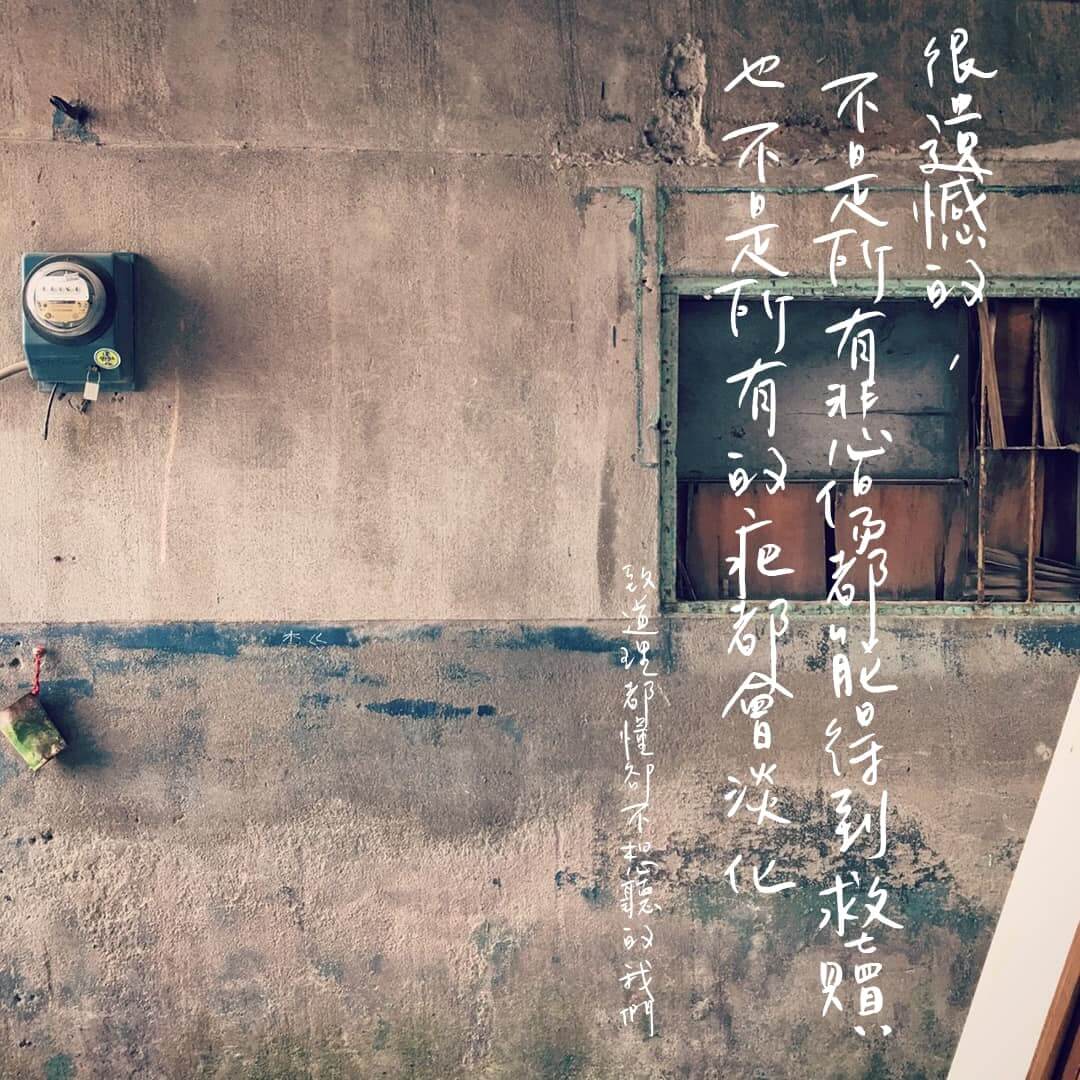 很遺憾的,
不是所有悲傷都能得到救贖
也不是所有的疤都會淡化
致道理都懂卻不想聽的我們